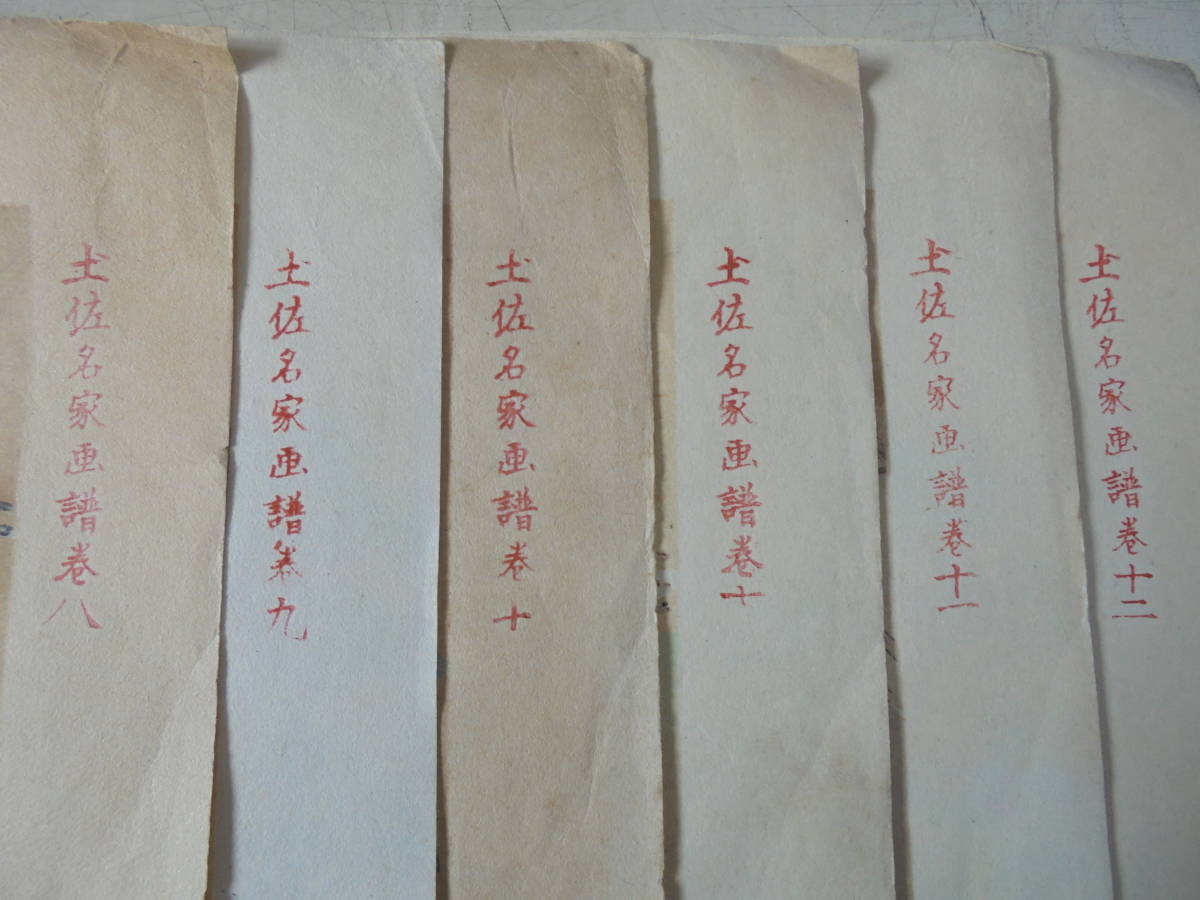 土佐名家画譜巻八
土佐名家画譜巻九
土佐名家画譜巻十
土佐名家画譜巻十
土佐名家画譜巻十一
土佐名家画譜巻十二